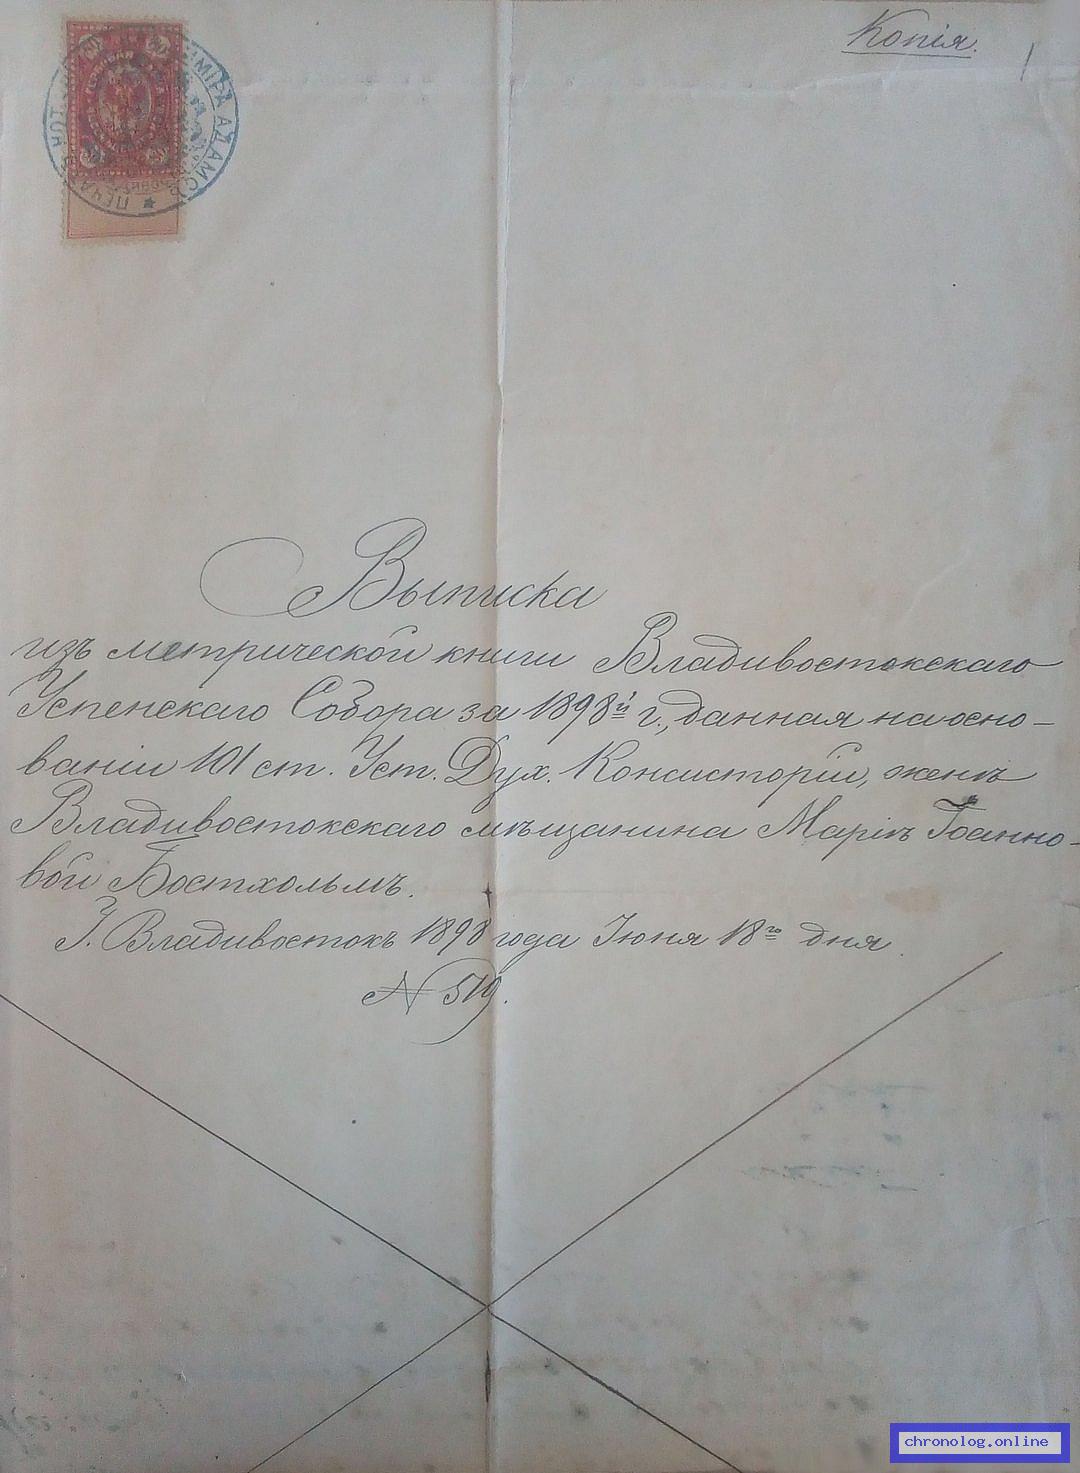 Копія.
Выписка
изъ метрической книги Владивостокскаго
Успенскаго Собора за 1898й г., данная на осно-
ваніи 101 ст. Уст. Дух. Консисторіи, женѣ
Владивостокскаго мѣщанина Маріи Іоанно-
вой Бостхольмъ.
Г. Владивостокъ 1898 года Іюня 18го дня.
№ 519.
ПЕЧАТЬ НОТ АДАМОВ
chronolog.online